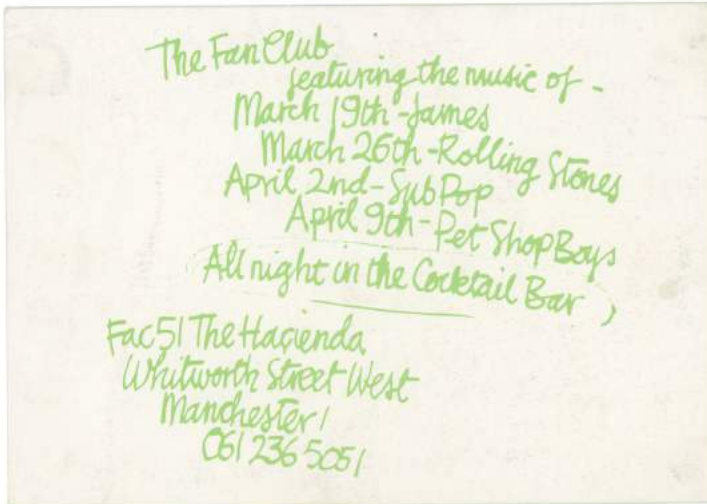 The Fan Club
featuring the music of -
March 19th - James
March 26th - Rolling Stones
April 2nd - Sub Pop
April 9th - Pet Shop Boys
All night in the Cocktail Bar
Fac 51 The Haçienda
Whitworth Street West
Manchester 1
061 236 5051